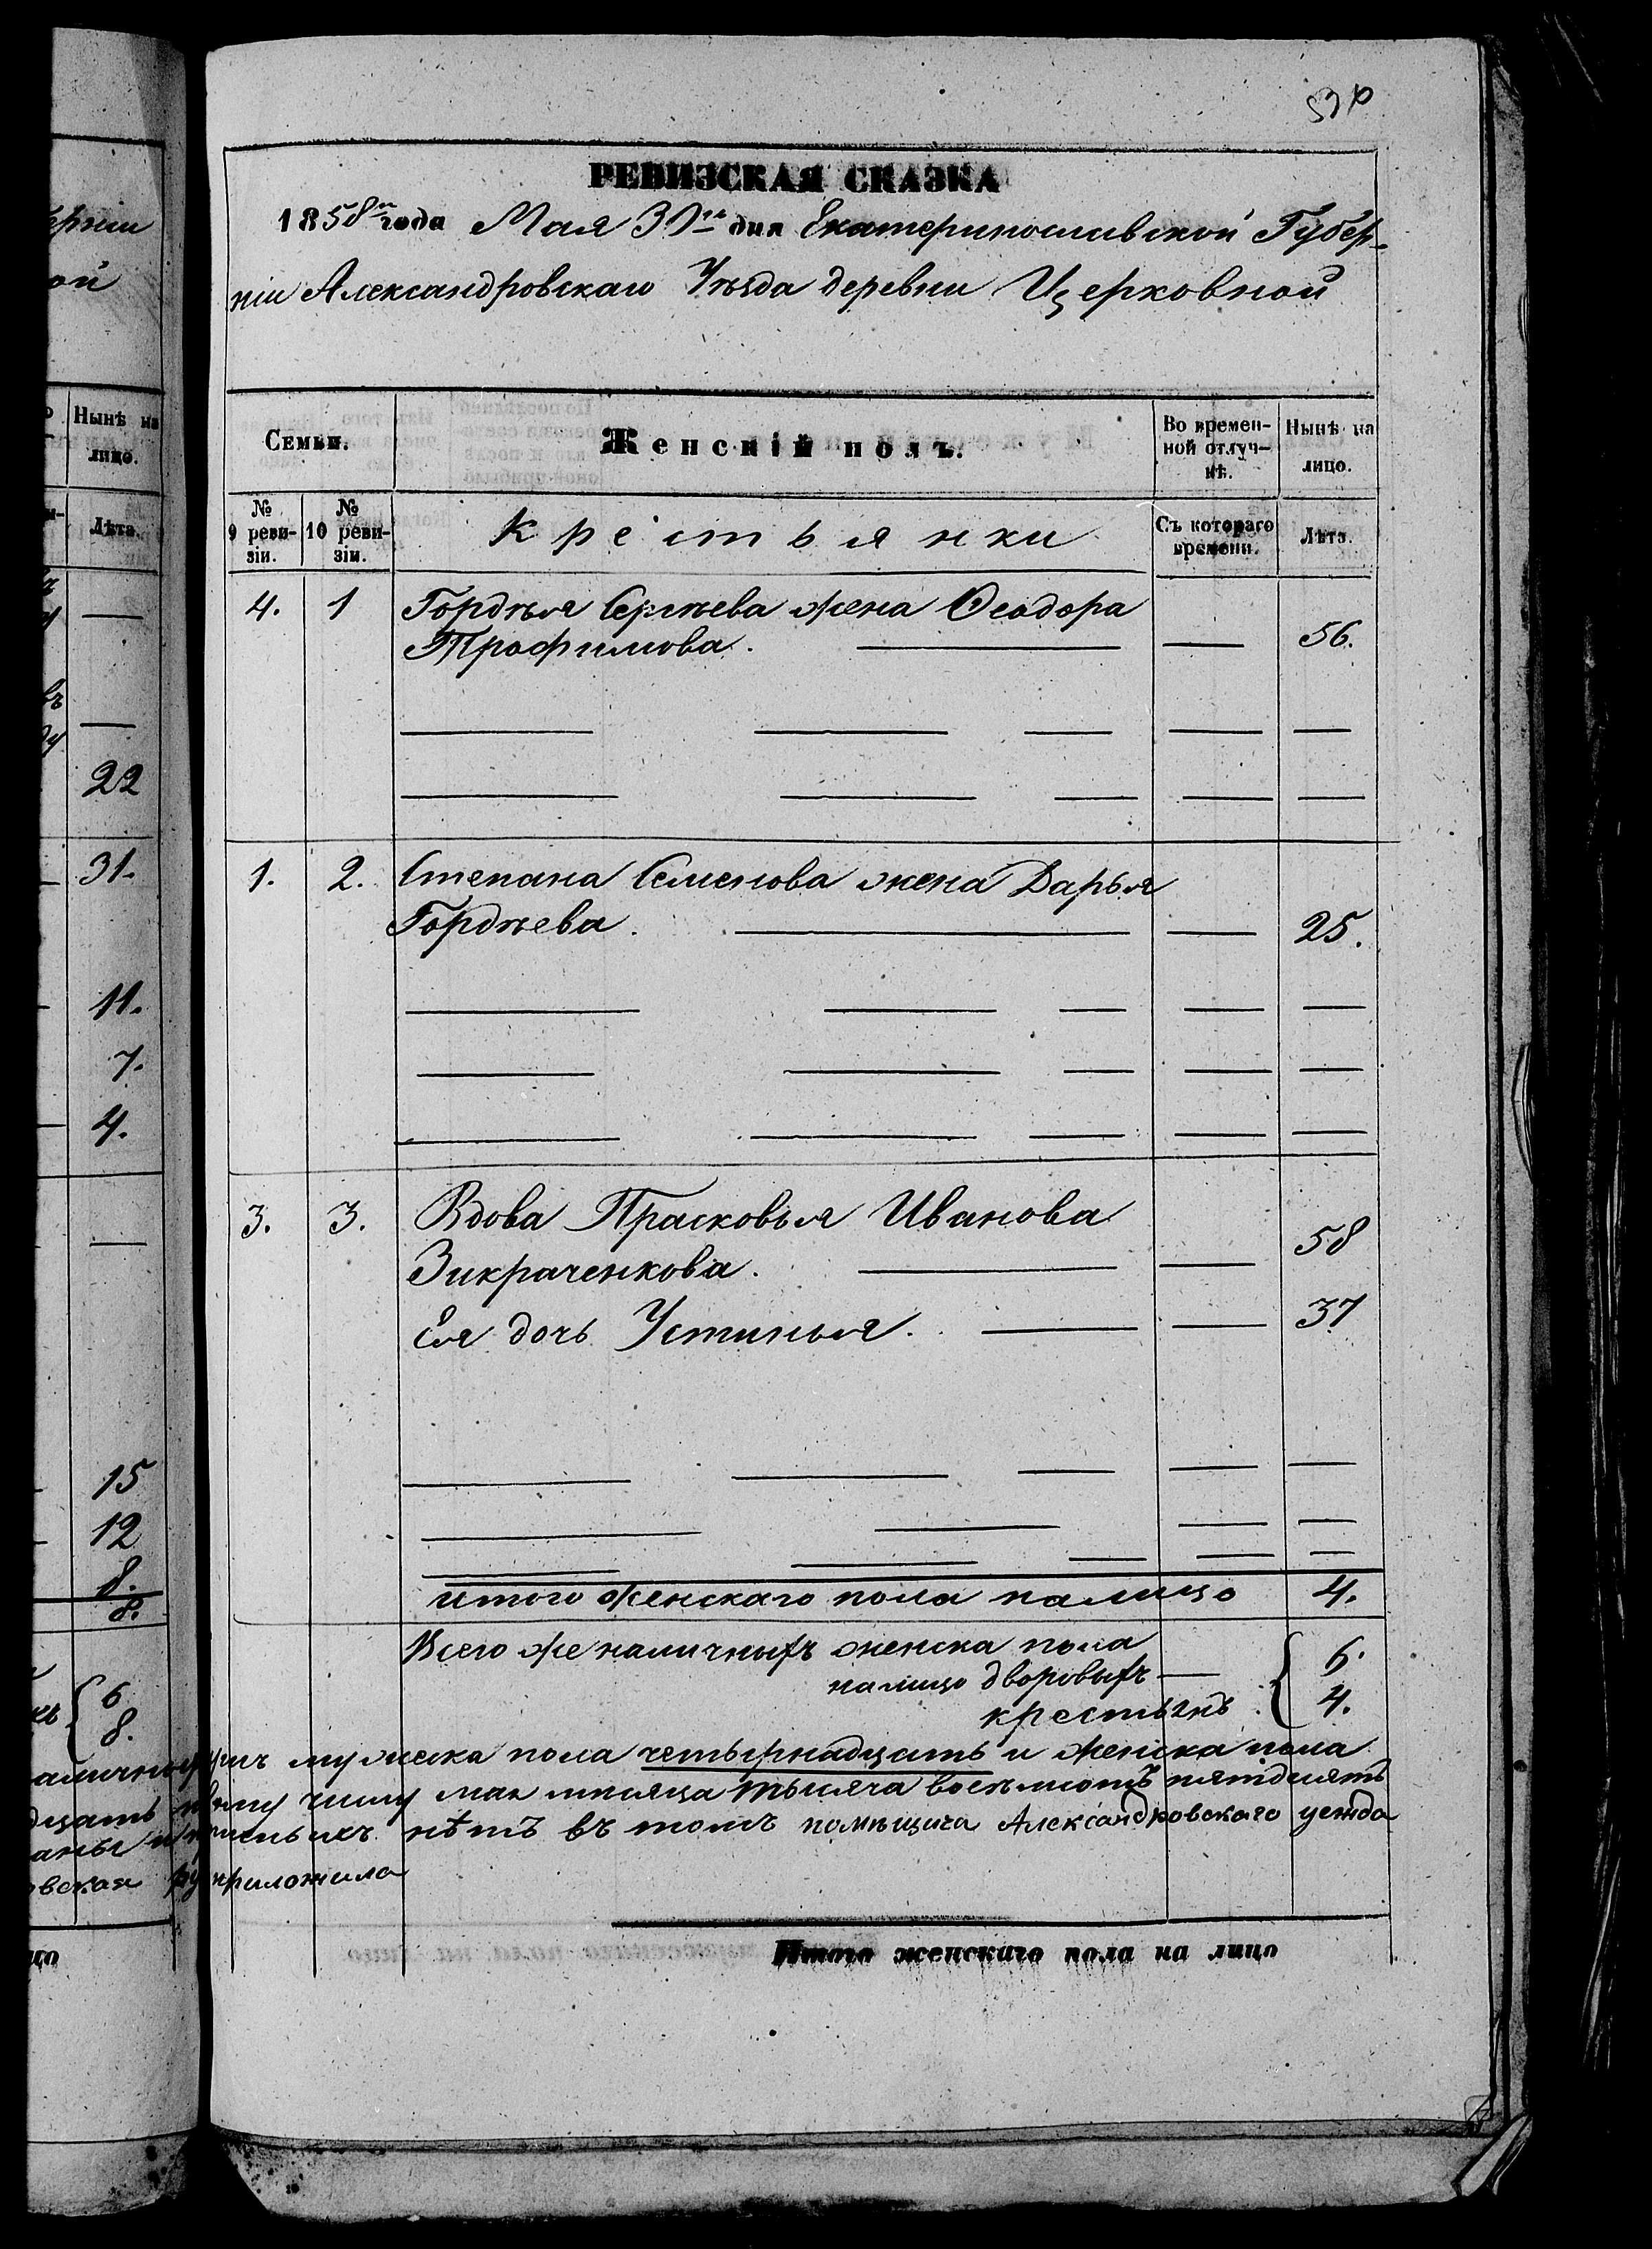 РЕВИЗСКАЯ СКАЗКА
1858го года Мая 30го дня Екатеринославской Губер-
ніи Александровскаго Уѣзда деревни Церковной
Нынѣ на лицо.
Лѣта.
22
31.
11.
7.
4.
15
12
8.
8.
6
8.
Семьи.
Женскій полъ.
Во времен-
ной отлуч-
кѣ.
Нынѣ на
лицо.
№ 9 реви-
зіи.
№ 10 реви-
зіи.
Крестьянки
Съ котораго
времени.
Лѣта.
4. 1 Гордѣя Сергѣева жена Ѳеодора
Трофимова. 56.
1. 2. Степана Семенова жена Дарья
Гордѣева. 25.
3. 3. Вдова Прасковья Иванова
Зикраченкова. 58
Ея дочь Устинья. 37
итого женскаго пола налицо 4.
Всего же наличныхъ женска пола
налицо дворовыхъ 6.
крестьянъ 4.
мужеска пола четырнадцать и женска пола
числу мая мѣсяца тысяча восемьсотъ пятдесятъ
нѣтъ въ томъ помѣщица Александровскаго уезда
приложила
Итого женскаго пола на лицо